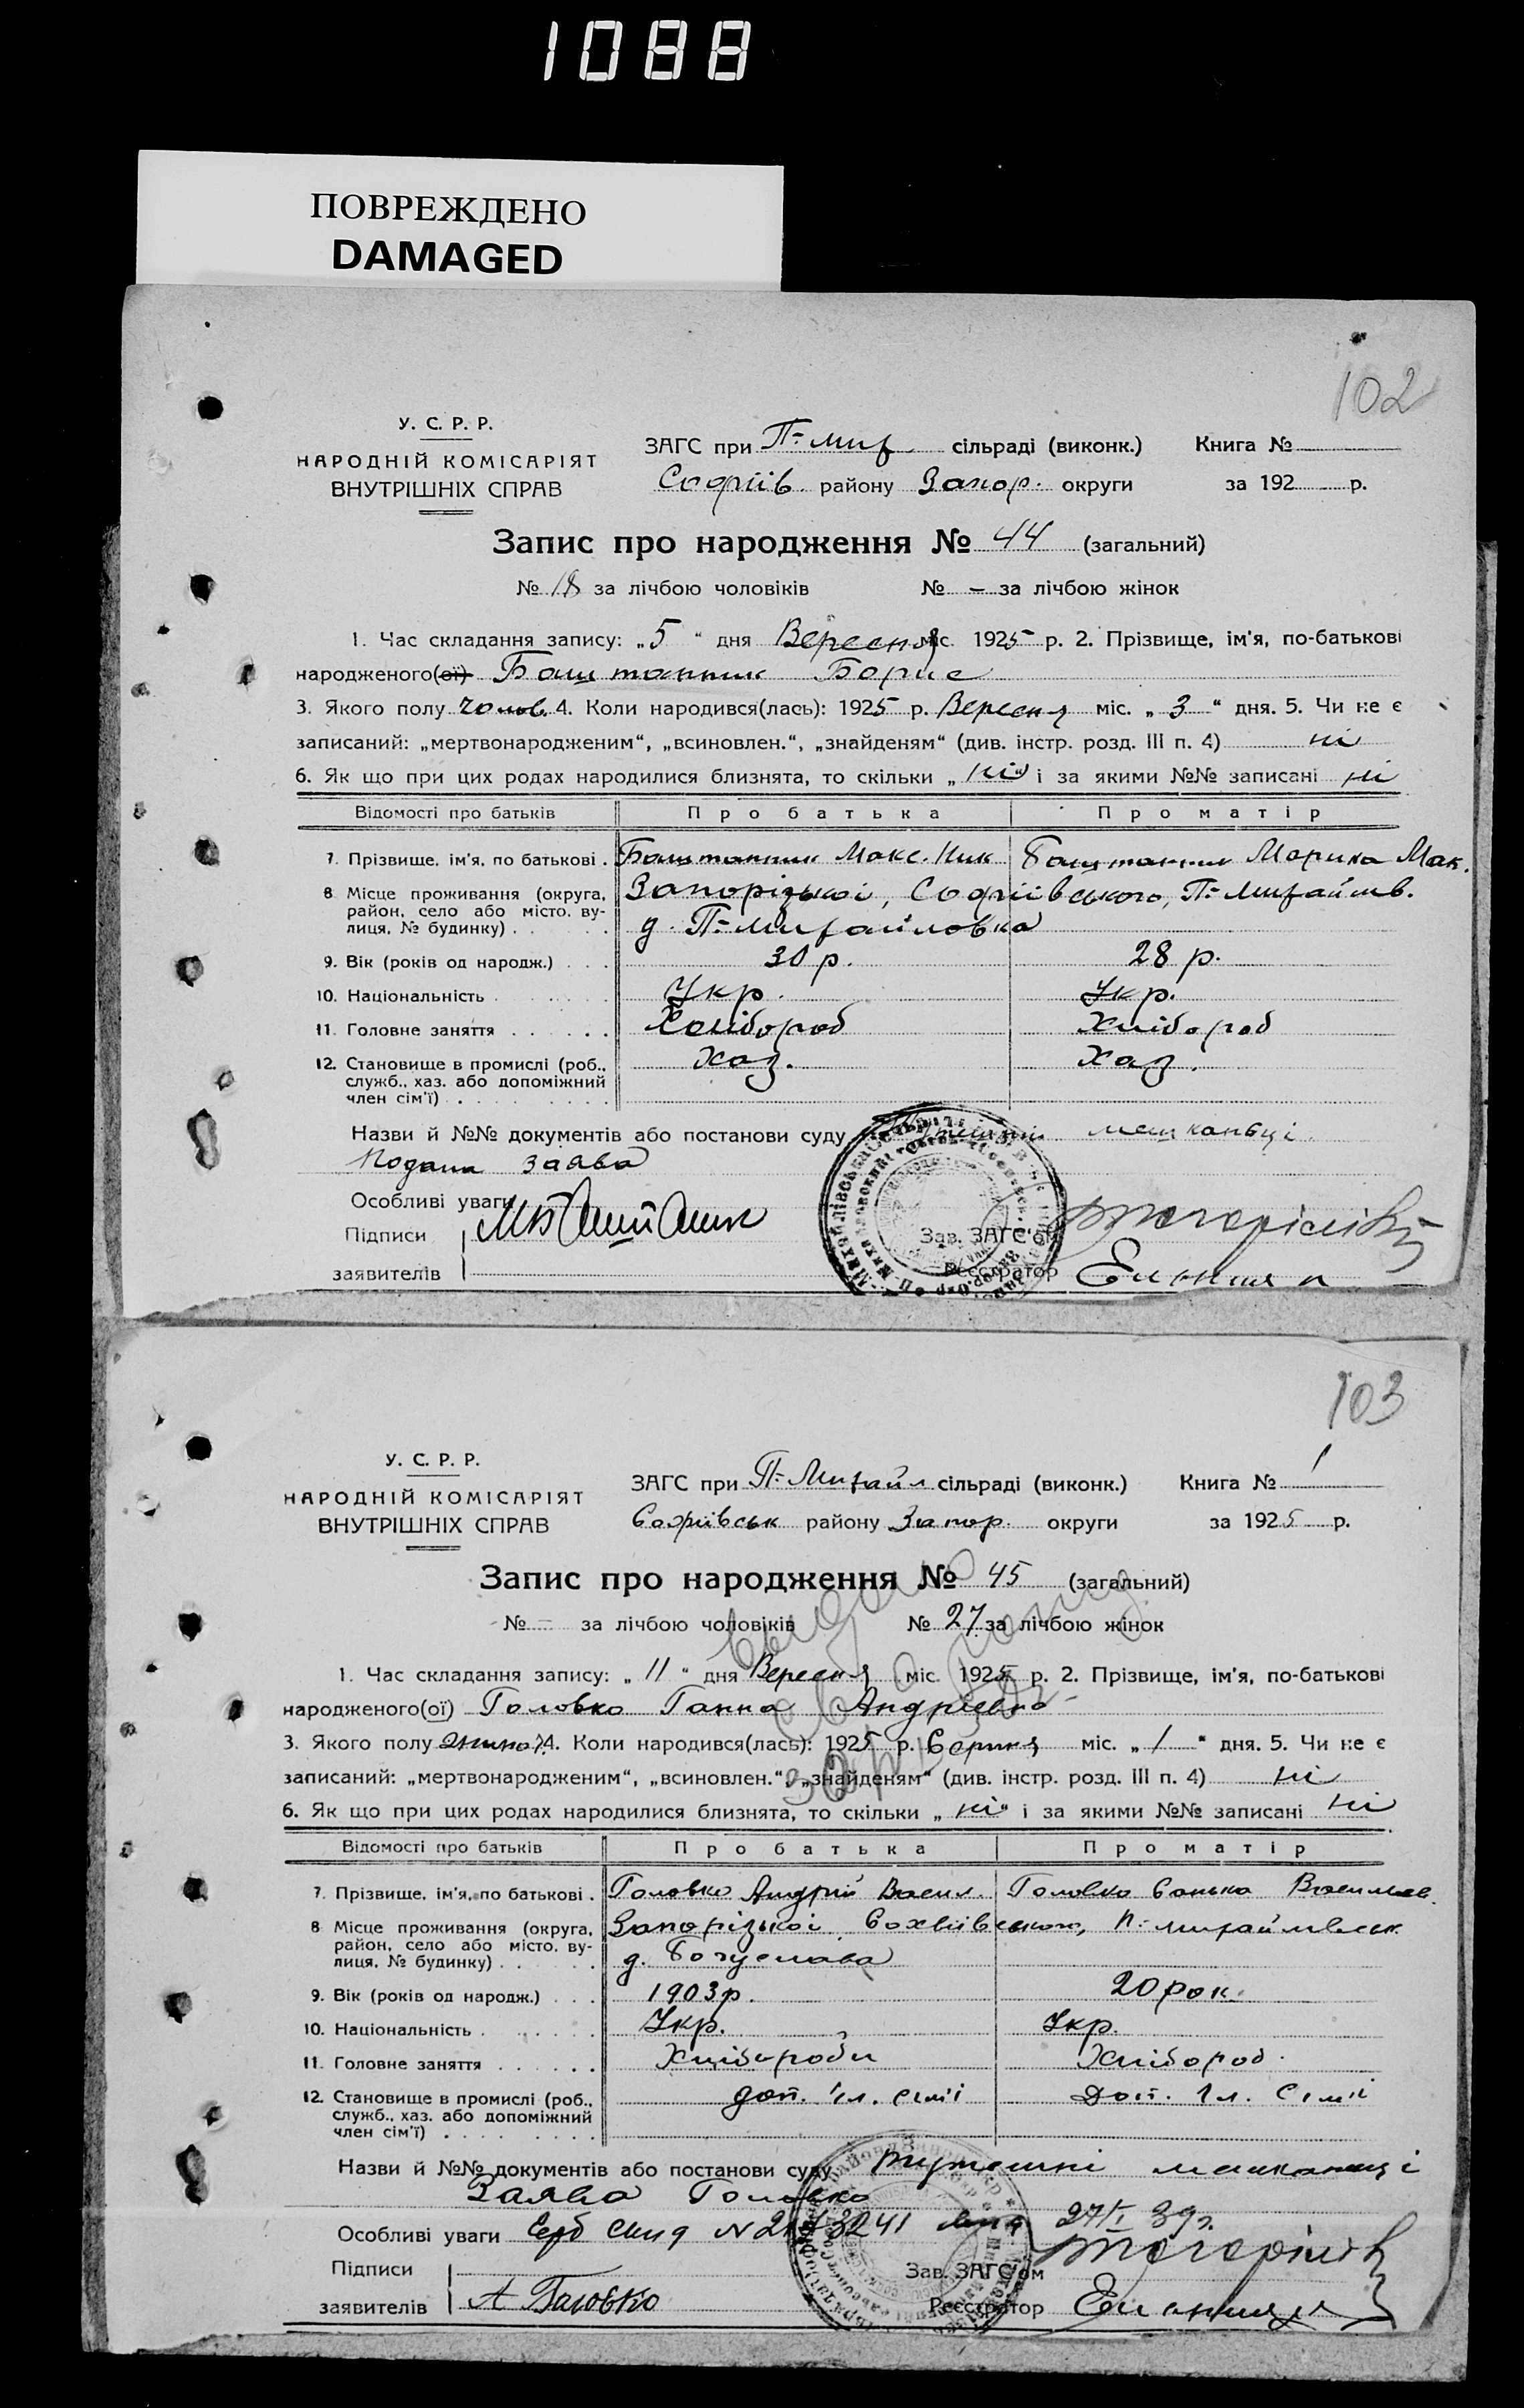 1088
ПОВРЕЖДЕНО
DAMAGED
102
У. С. Р. Р.
НАРОДНІЙ КОМІСАРІЯТ
ВНУТРІШНІХ СПРАВ
ЗАГС при П=Мих сільраді (виконк.) Книга №
Софіїв. району Запор. округи за 192 р.
Запис про народження № 44 (загальний)
№ 18 за лічбою чоловіків № - за лічбою жінок
1. Час складання запису: „5" дня Вересня міс. 1925 р. 2. Прізвище, ім'я, по-батькові
народженого(ої) Баштанник Борис
3. Якого полу чолов. 4. Коли народився(лась): 1925 р. Вересня міс. „3" дня. 5. Чи не є
записаний: „мертвонародженим", „всиновлен.", „знайденям" (див. інстр. розд. III п. 4) ні
6. Як що при цих родах народилися близнята, то скільки „ні" і за якими №№ записані ні
Відомості про батьків Про батька Про матір
7. Прізвище, ім'я, по батькові . Баштанник Макс. Ник Баштанник Марина Мак.
8 Місце проживання (округа, район, село або місто, вулиця, № будинку) Запорізької, Софіївського, П=Михайлів.
д. П=Михайловка
9. Вік (років од народж.) . . . 30 р. 28 р.
10. Національність Укр. Укр.
11. Головне заняття Хлібороб Хлібороб
12. Становище в промислі (роб., служб., хаз. або допоміжний член сім'ї) Хаз. Хаз.
Назви й №№ документів або постанови суду мешканьці
Подана заява
Особливі уваги
Підписи
заявителів
Зав. ЗАГС'ом
Реєстратор
103
У. С. Р. Р.
НАРОДНІЙ КОМІСАРІЯТ
ВНУТРІШНІХ СПРАВ
ЗАГС при П=Михайл сільраді (виконк.) Книга № 1
Софіївськ району Запор. округи за 1925 р.
Запис про народження № 45 (загальний)
№ - за лічбою чоловіків № 27 за лічбою жінок
1. Час складання запису: „11" дня Вересня міс. 1925 р. 2. Прізвище, ім'я, по-батькові
народженого(ої) Головко Ганна Андріевна
3. Якого полу жіноч. 4. Коли народився(лась): 1925 р. Серпня міс. „1" дня. 5. Чи не є
записаний: „мертвонародженим", „всиновлен.", „знайденям" (див. інстр. розд. III п. 4) ні
6. Як що при цих родах народилися близнята, то скільки „ні" і за якими №№ записані ні
Відомості про батьків Про батька Про матір
7. Прізвище, ім'я, по батькові . Головко Андрій Васил. Головко Санька Васильев.
8 Місце проживання (округа, район, село або місто, вулиця, № будинку) Запорізької, Сохвіівського, П=Михайлівськ
д. Богуслава
9. Вік (років од народж.) . . . 1903 р. 20 рок.
10. Національність Укр. Укр.
11. Головне заняття Хлібороби Хлібород.
12. Становище в промислі (роб., служб., хаз. або допоміжний член сім'ї) доп. чл. сімїї Доп. чл. Сімїї
Назви й №№ документів або постанови суду тутешні мешканьці
Заява Головко
Особливі уваги 27/I 39 г.
Підписи
заявителів А Головко
Зав. ЗАГС'ом
Реєстратор